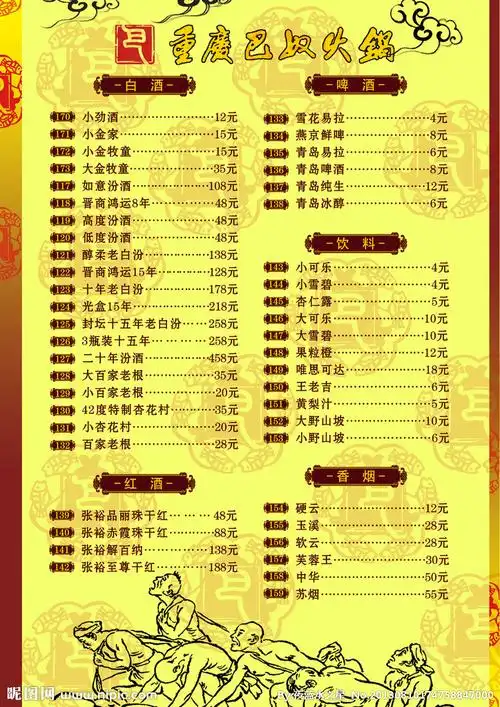 重慶巴奴火鍋
白酒
170 小劲酒 12元
171 小金家 15元
172 小金牧童 15元
173 大金牧童 35元
117 如意汾酒 108元
118 晋商鸿运8年 48元
119 高度汾酒 48元
120 低度汾酒 48元
121 醇柔老白汾 138元
122 晋商鸿运15年 128元
123 十年老白汾 178元
124 光盒15年 218元
125 封坛十五年老白汾 258元
126 3瓶装十五年 258元
127 二十年汾酒 458元
128 大百家老根 35元
129 小百家老根 20元
130 42度特制杏花村 35元
131 小杏花村 20元
132 百家老根 28元
红酒
139 张裕品丽珠干红 48元
140 张裕赤霞珠干红 88元
141 张裕解百纳 138元
142 张裕至尊干红 188元
啤酒
133 雪花易拉 4元
134 燕京鲜啤 8元
135 青岛易拉 6元
136 青岛啤酒 8元
137 青岛纯生 12元
138 青岛冰醇 6元
饮料
143 小可乐 4元
144 小雪碧 4元
145 杏仁露 5元
146 大可乐 10元
147 大雪碧 10元
148 果粒橙 12元
149 唯恩可达 18元
150 王老吉 6元
151 黄梨汁 5元
152 大野山坡 10元
153 小野山坡 6元
香烟
154 硬云 12元
155 玉溪 28元
156 软云 28元
157 芙蓉王 30元
158 中华 50元
159 苏烟 55元
昵图网 www.nipic.com